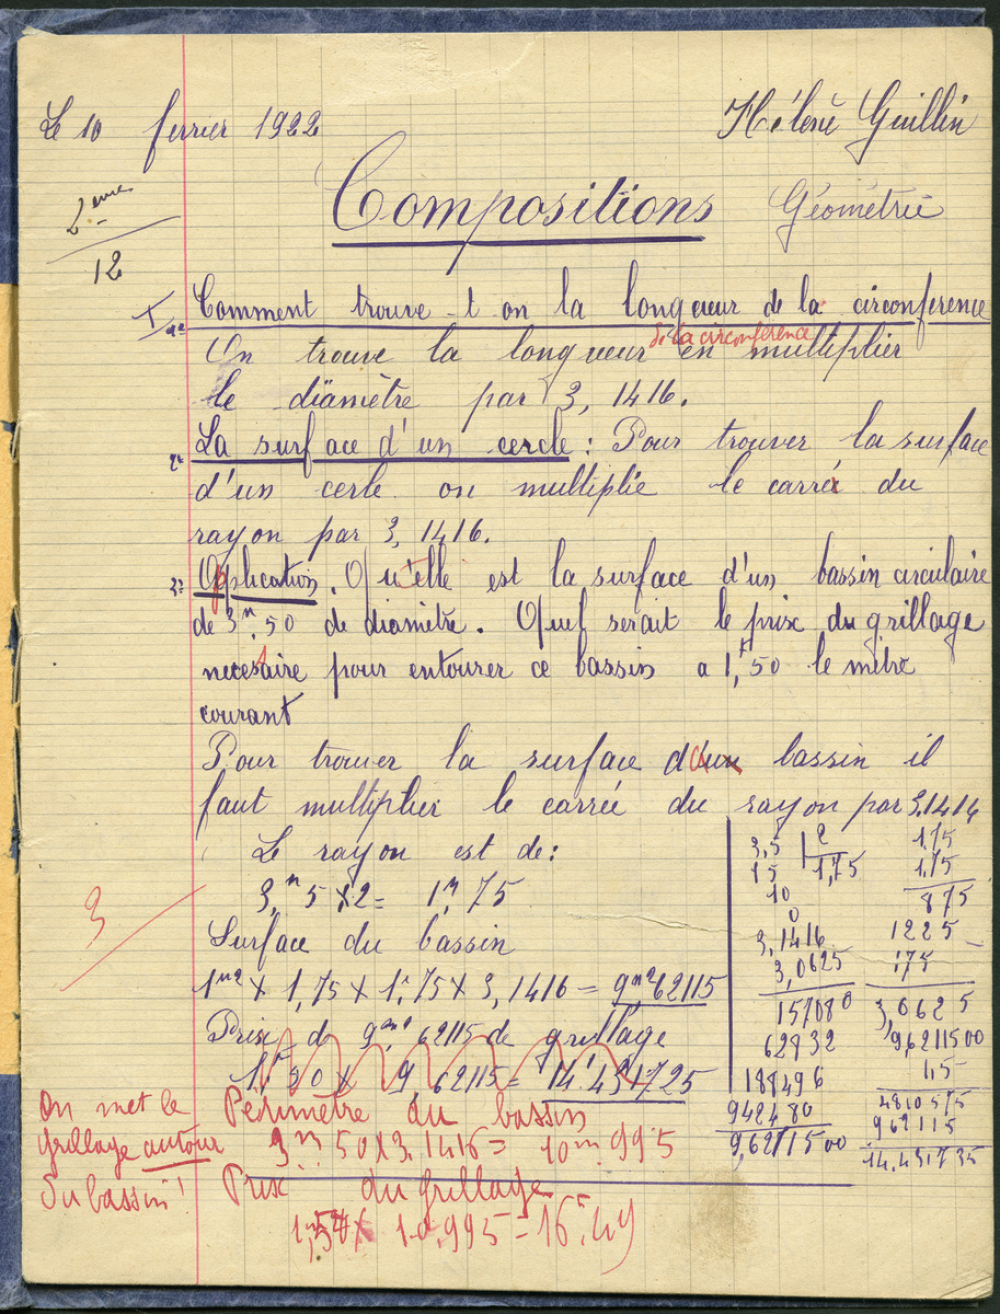 Le 10 ferrier 1922
Hélène Guillin
2eme
12
Compositions Géométrie
I
1° Comment trouve-t on la longueur de la circonference
de la circonférence
On trouve la longueur en multiplier
le diamètre par 3, 1416.
2° La surface d'un cercle : Pour trouver la surface
d'un cerle on multiplie le carré du
rayon par 3, 1416.
3° Application. Qu'elle est la surface d'un bassin circulaire
de 3m,50 de diamètre. Quel serait le prix du grillage
necesaire pour entourer ce bassin a 1f,50 le mètre
courant
Pour trouver la surface d'un bassin il
faut multiplier le carrée du rayon par 3,1416
Le rayon est de:
3m,5 × 2 = 1m,75
Surface du bassin
1m2 × 1,75 × 1,75 × 3,1416 = 9m2 62115
Prix de 9m2 62115 de grillage
1f 50 × 9,62115 = 14f 431725
3
3,5 2
15 1,75
10
0
1,75
1,75
875
1225
175
3,0625
3,1416
3,0625
157080
62832
188496
942480
9,6211500
9,6211500
1,5
4810575
962115
14.431725
On met le
grillage autour
du bassin!
Périmètre du bassin
3m 50 × 3,1416 = 10m 995
Prix du grillage
1,50 × 10,995 = 16f,49